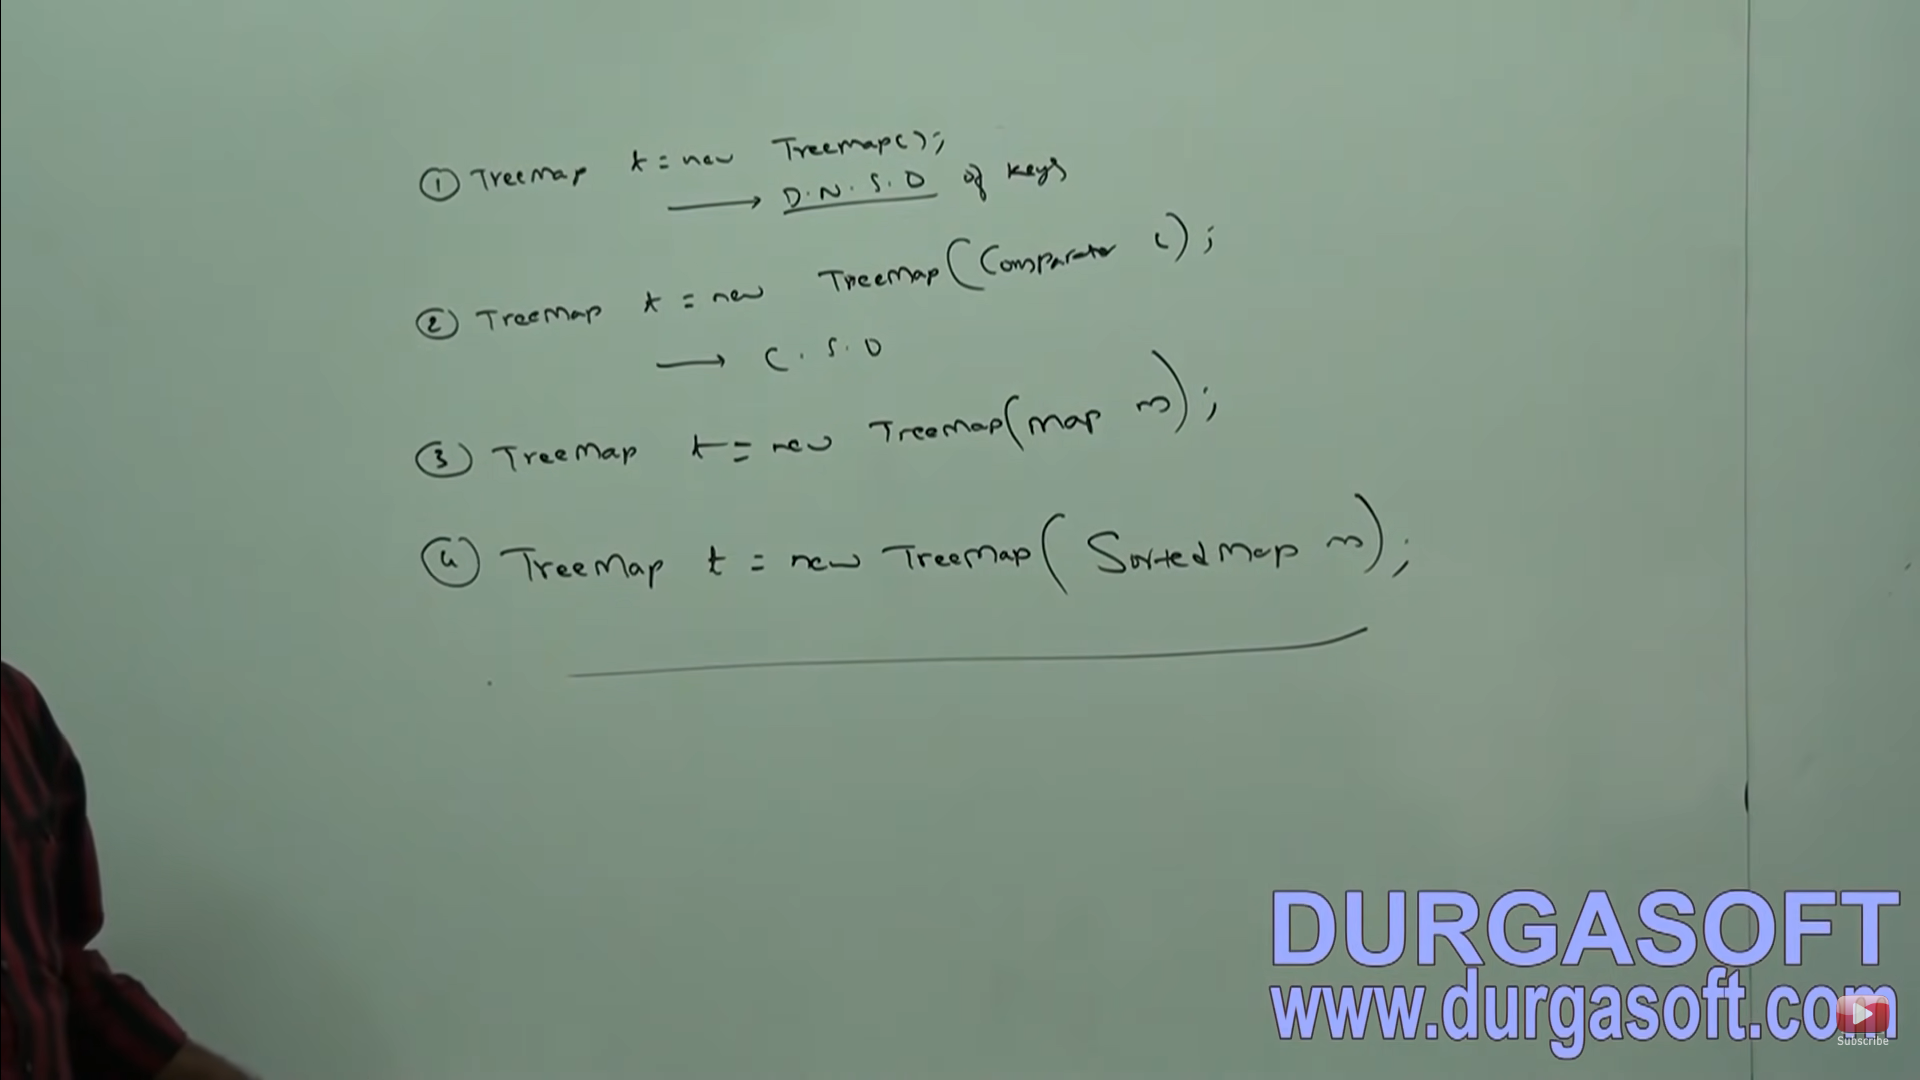 ① TreeMap t = new Treemap();
→ D.N.S.O of keys
② TreeMap t = new TreeMap(Comparator c);
→ C.S.O
③ TreeMap t = new TreeMap(map m);
④ TreeMap t = new TreeMap(SortedMap m);
DURGASOFT
www.durgasoft.com
Subscribe